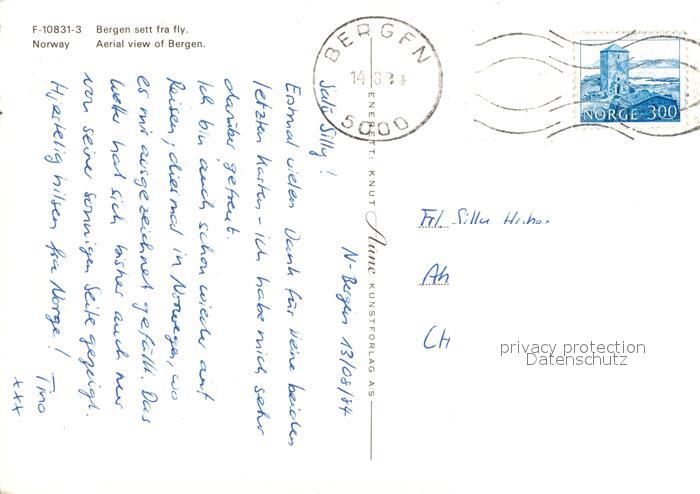 F-10831-3 Bergen sett fra fly.
Norway Aerial view of Bergen.
BERGEN
14.8.84
5000
NORGE 300
ENERETT: KNUT Aune KUNSTFORLAG AS
N-Bergen 13/08/84
Salü Silly!
Erstmal vielen Dank für Deine beiden
letzten Karten - ich habe mich sehr
darüber gefreut.
Ich bin auch schon wieder auf
Reisen, diesmal in Norwegen, wo
es mir ausgezeichnet gefällt. Das
Wetter hat sich bisher auch nur
von seiner sonnigen Seite gezeigt.
Hjertelig hilsen fra Norge! Tino
xxx
Frl. Silly
CH
privacy protection
Datenschutz